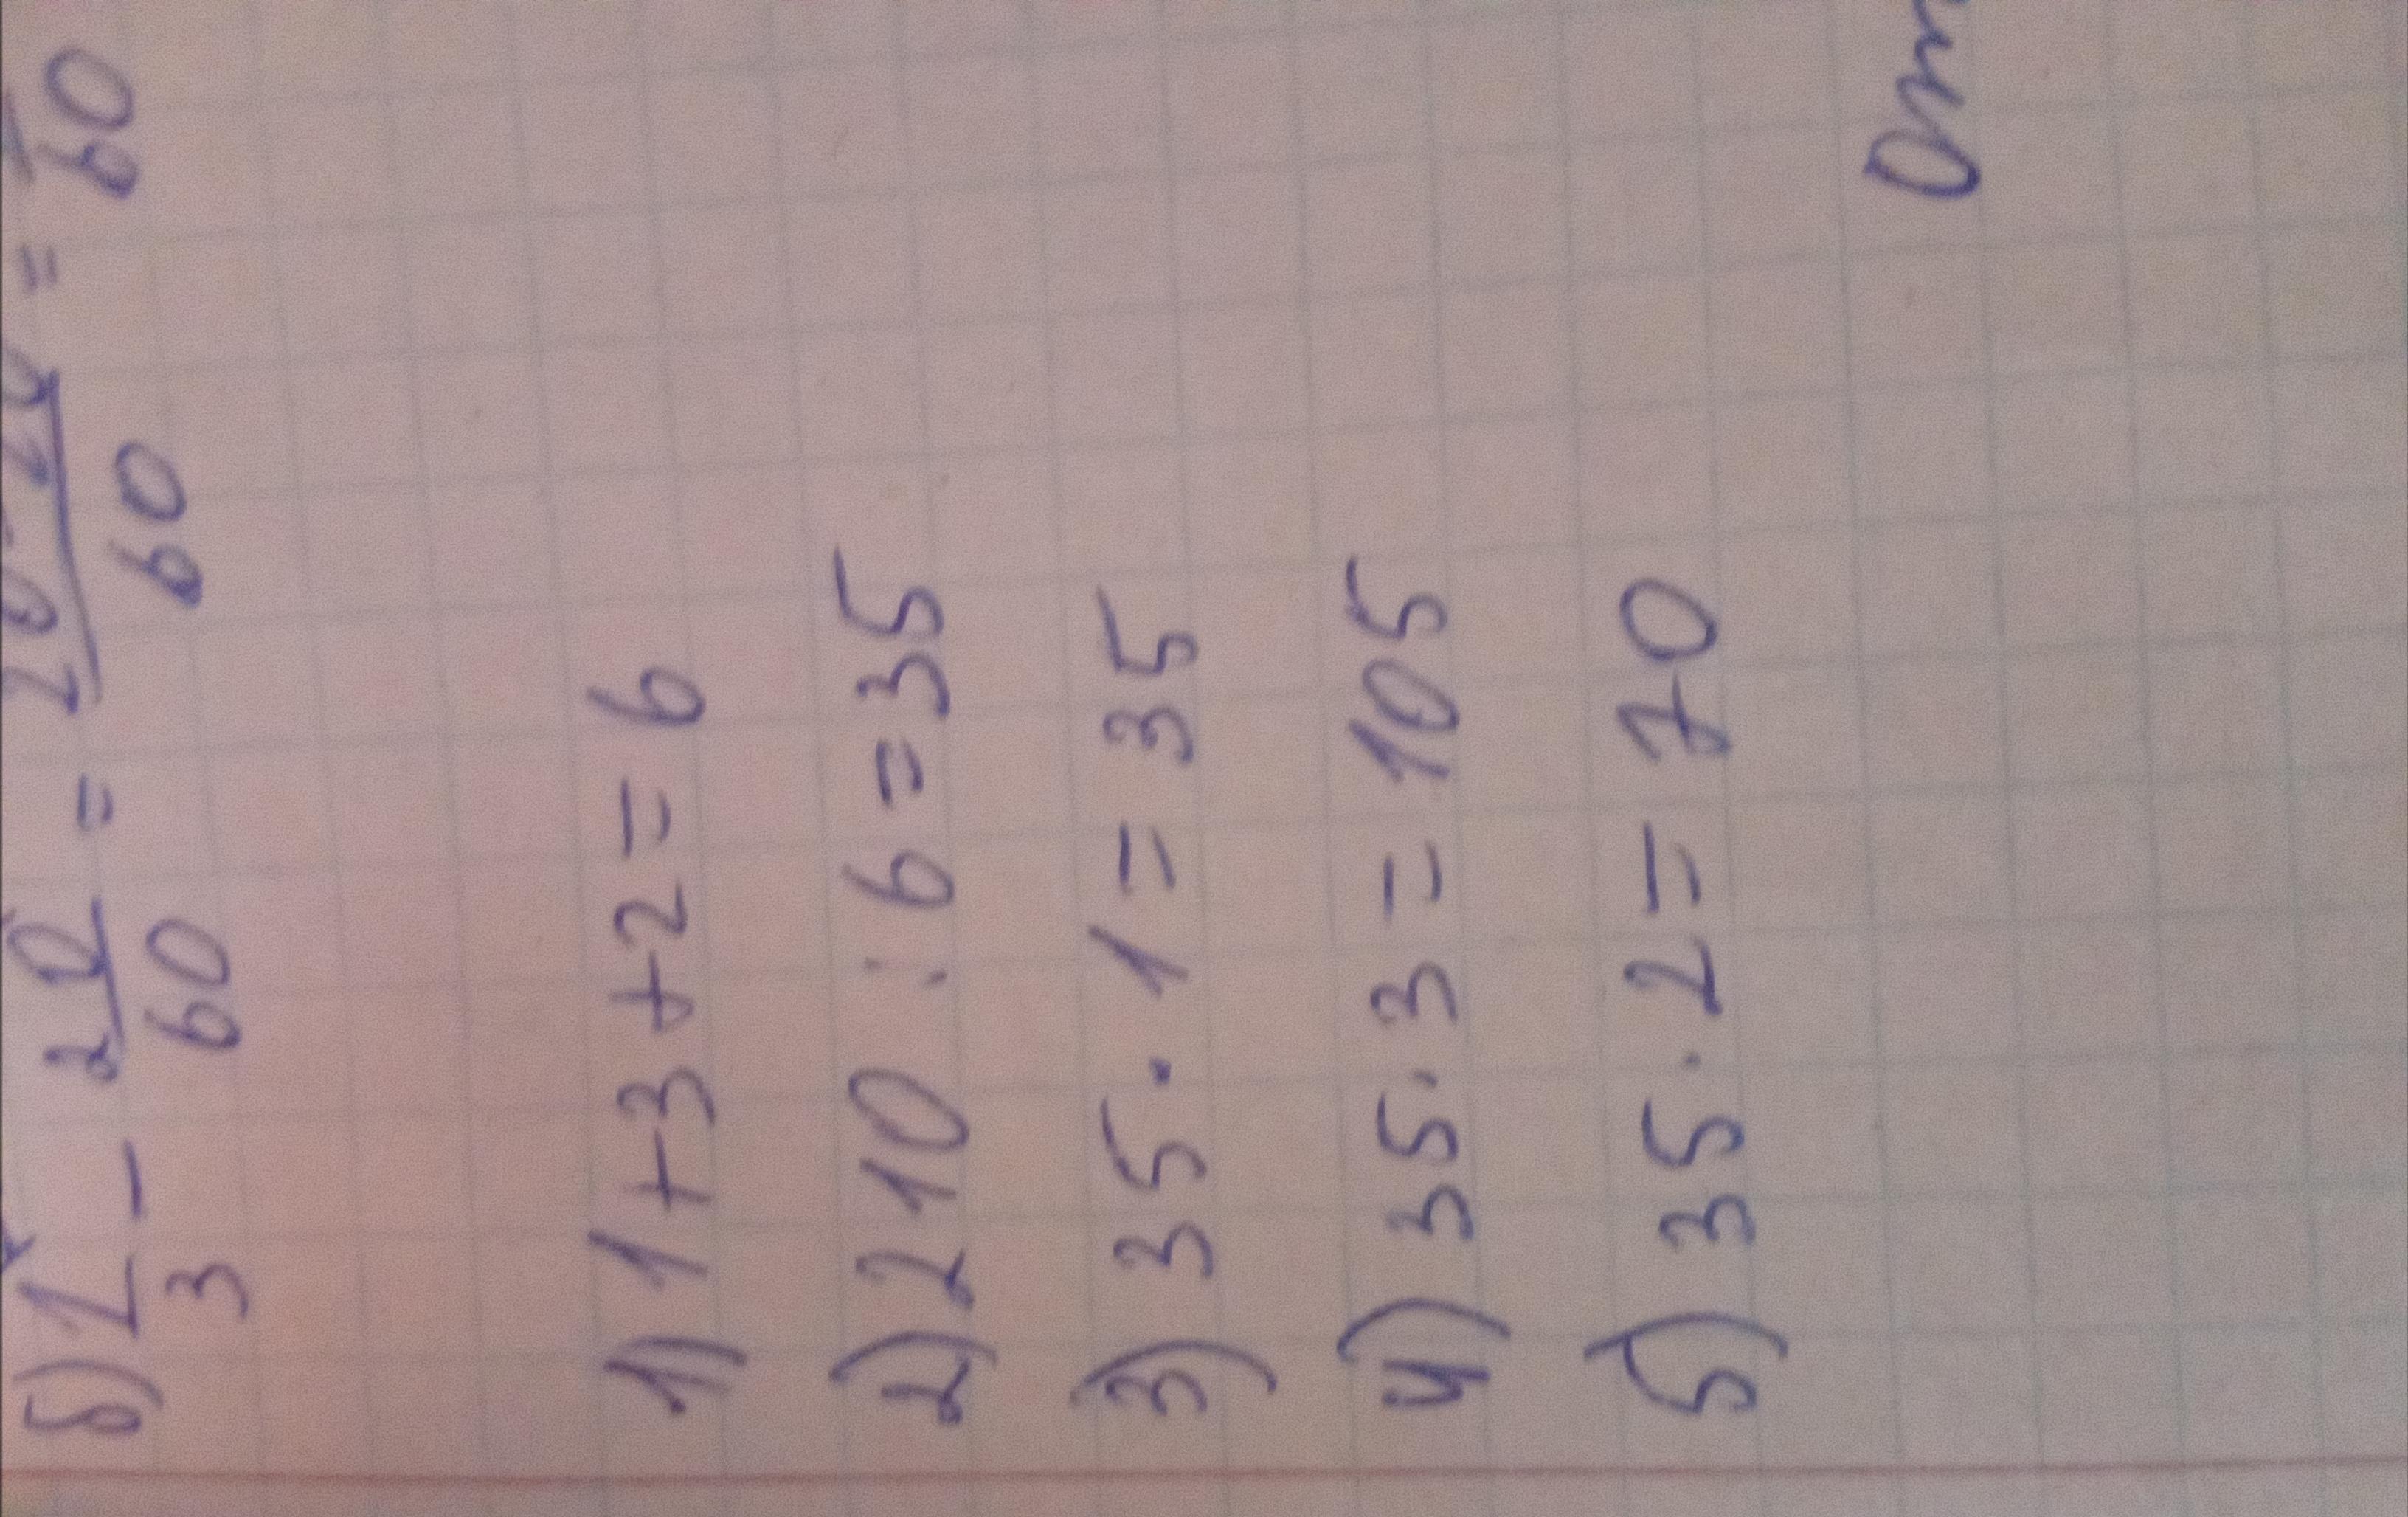 б) 1/3 - 20/60 = 20-20/60 = /60
1) 1+3+2=6
2) 210 : 6=35
3) 35 · 1 = 35
4) 35·3=105
5) 35·2=70